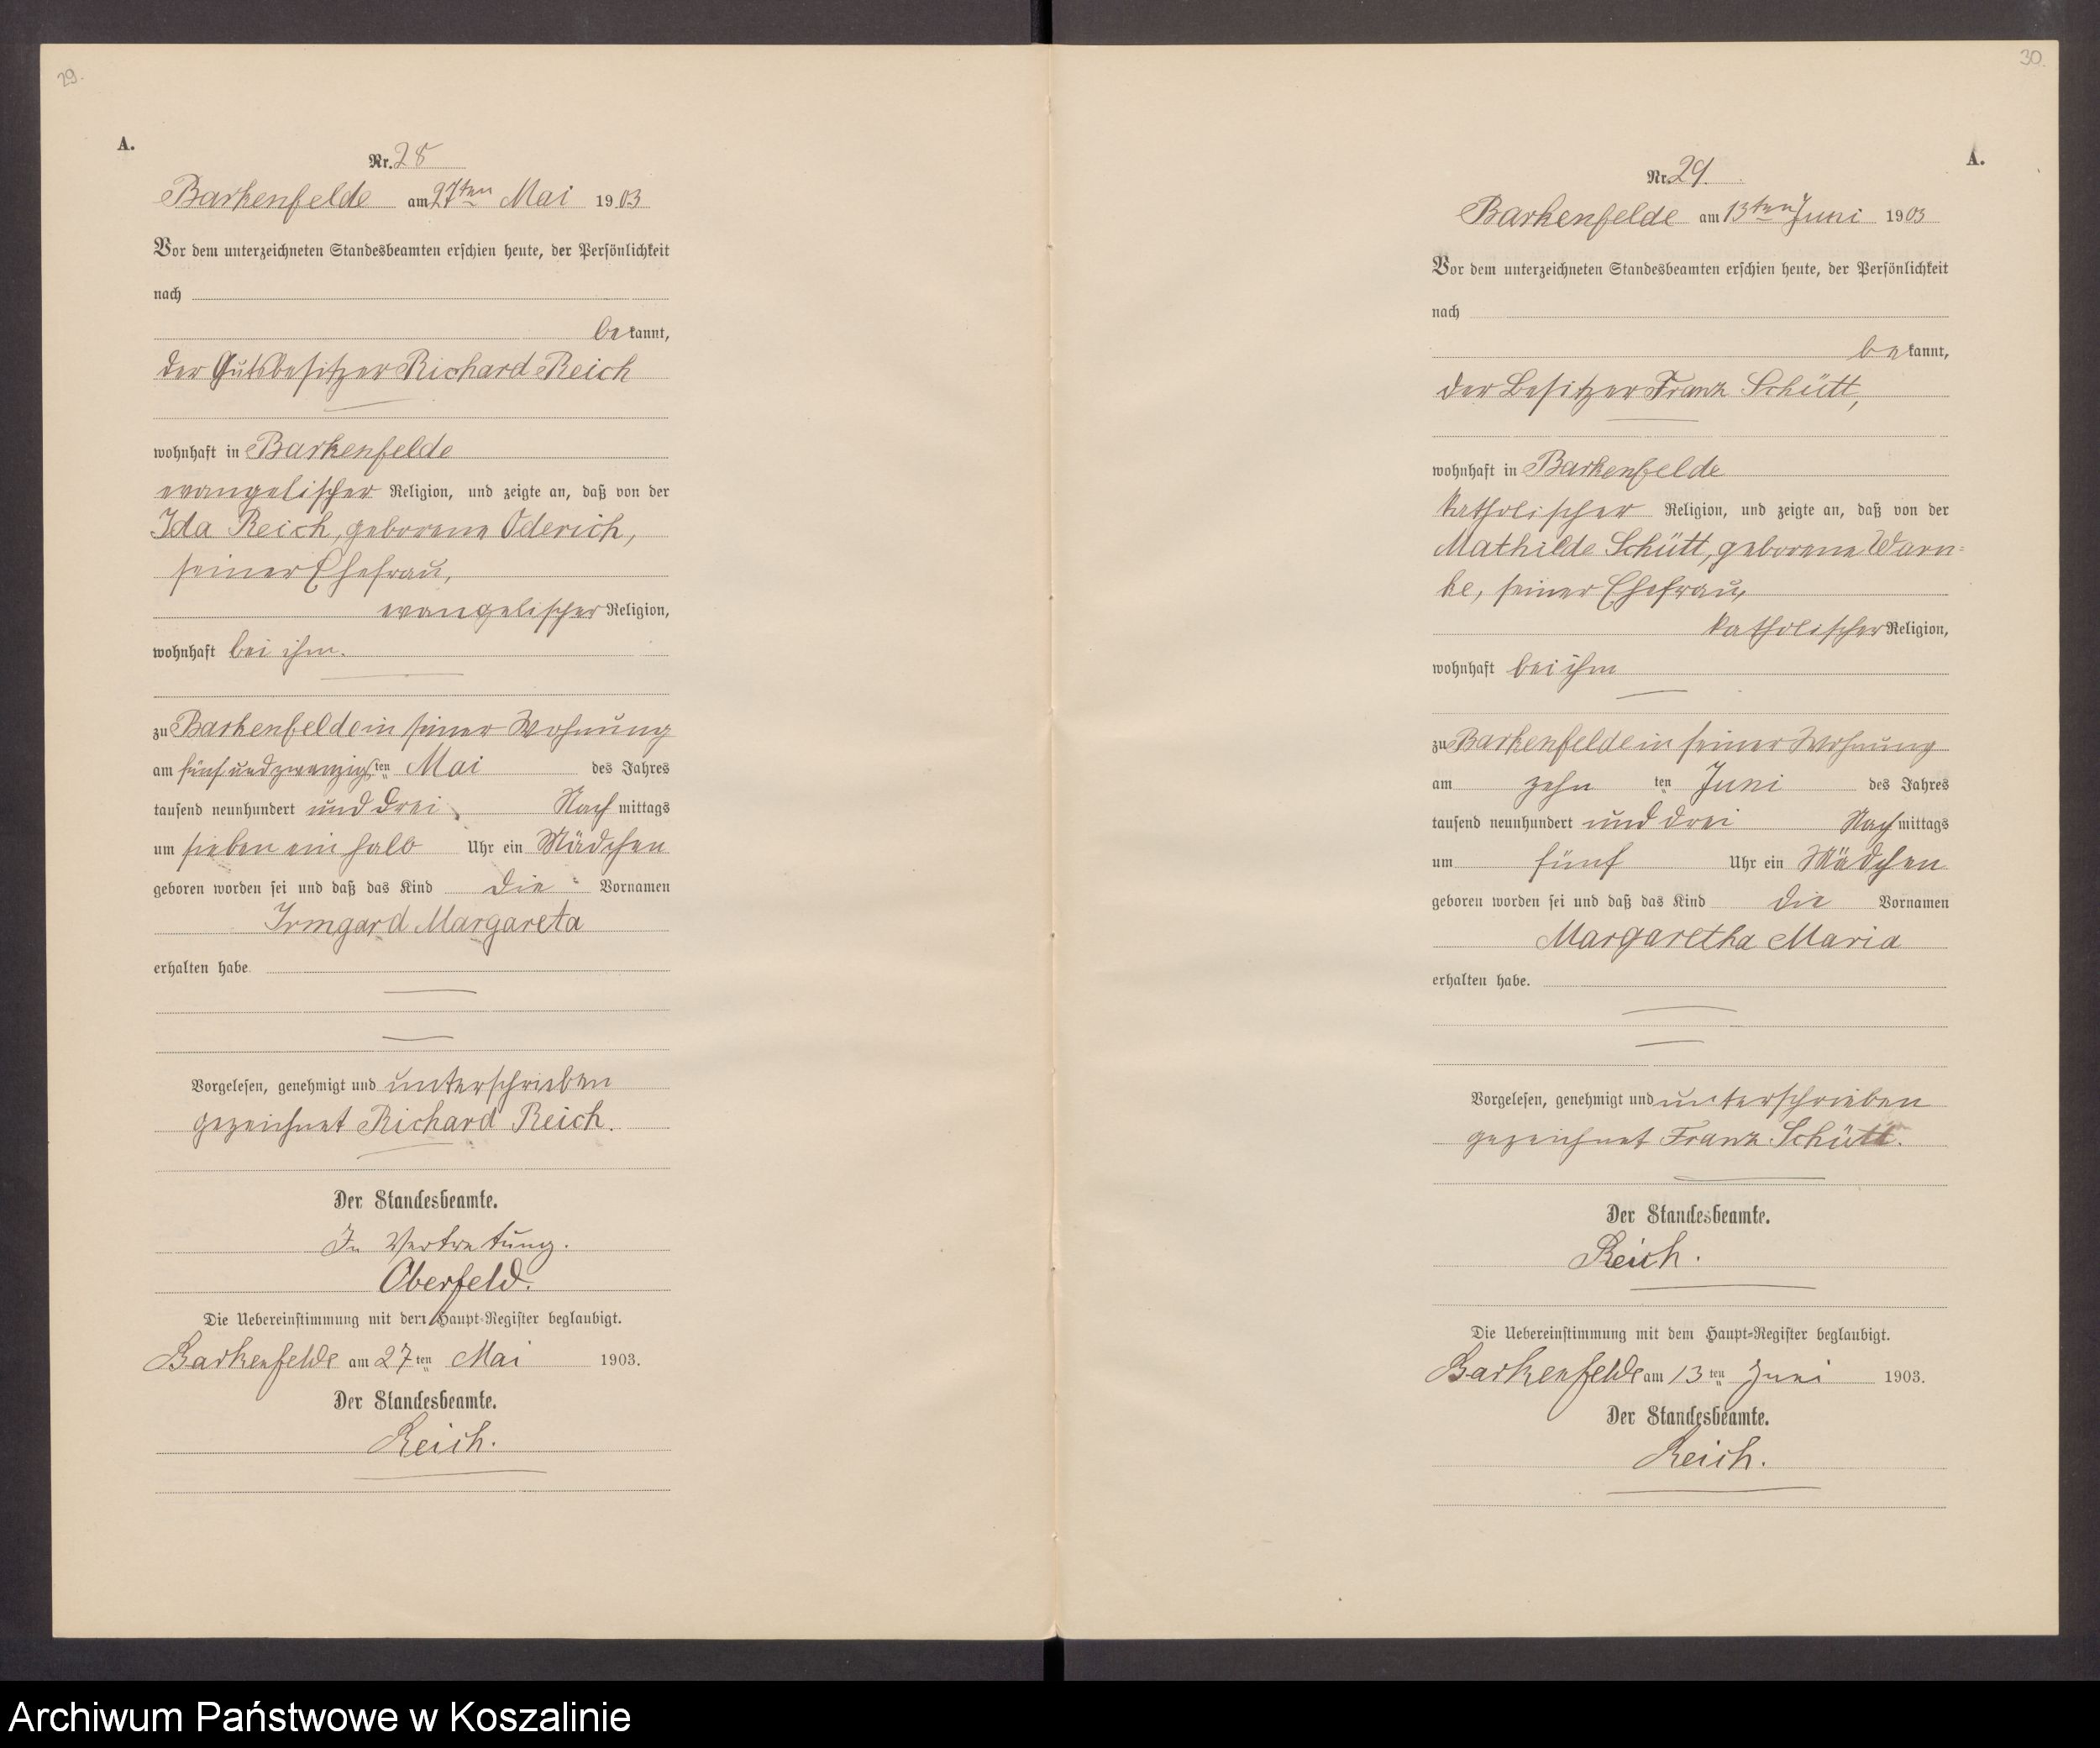 29.
A.
Nr. 28
Barkenfelde am 27ten Mai 1903
Vor dem unterzeichneten Standesbeamten erschien heute, der Persönlichkeit
nach
bekannt,
der Gutsbesitzer Richard Reich
wohnhaft in Barkenfelde
evangelischer Religion, und zeigte an, daß von der
Ida Reich, geborene Oderich,
seiner Ehefrau,
evangelischer Religion,
wohnhaft bei ihm.
zu Barkenfelde in seiner Wohnung
am fünf und zwanzigsten Mai des Jahres
tausend neunhundert und drei Nachmittags
um sieben ein halb Uhr ein Mädchen
geboren worden sei und daß das Kind die Vornamen
Irmgard Margareta
erhalten habe
Vorgelesen, genehmigt und unterschrieben
gezeichnet Richard Reich.
Der Standesbeamte.
In Vertretung.
Oberfeld.
Die Uebereinstimmung mit dem Haupt-Register beglaubigt.
Barkenfelde am 27ten Mai 1903.
Der Standesbeamte.
Reich.
30.
A.
Nr. 29.
Barkenfelde am 13ten Juni 1903
Vor dem unterzeichneten Standesbeamten erschien heute, der Persönlichkeit
nach
bekannt,
der Besitzer Franz Schütt,
wohnhaft in Barkenfelde
katholischer Religion, und zeigte an, daß von der
Mathilde Schütt, geborene Warn=
ke, seiner Ehefrau,
katholischer Religion,
wohnhaft bei ihm
zu Barkenfelde in seiner Wohnung
am zehnten Juni des Jahres
tausend neunhundert und drei Nachmittags
um fünf Uhr ein Mädchen
geboren worden sei und daß das Kind die Vornamen
Margaretha Maria
erhalten habe.
Vorgelesen, genehmigt und unterschrieben
gezeichnet Franz Schütt.
Der Standesbeamte.
Reich.
Die Uebereinstimmung mit dem Haupt-Register beglaubigt.
Barkenfelde am 13ten Juni 1903.
Der Standesbeamte.
Reich.
Archiwum Państwowe w Koszalinie